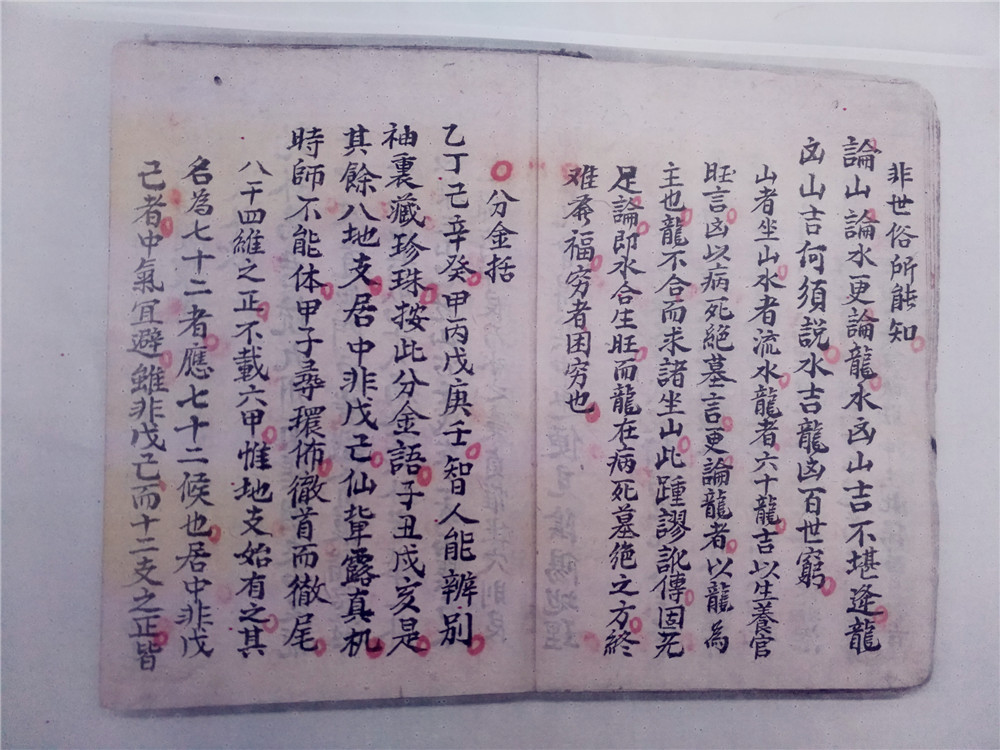 非世俗所能知
論山論水更論龍水凶山吉不堪逢龍
凶山吉何須説水吉龍凶百世窮
山者坐山水者流水龍者六十龍吉以生養官
旺言凶以病死絕墓言更論龍者以龍為
主也龍不合而求諸坐山此踵謬訛傳固无
足論即水合生旺而龍在病死墓絶之方終
难發福窮者困窮也
分金括
乙丁己辛癸甲丙戊庚壬智人能辨别
袖裏藏珍珠按此分金語子丑戌亥是
其餘八地支居中非戊己仙輩露真机
時師不能体甲子尋環佈徹首而徹尾
八干四維之正不載六甲惟地支始有之其
名為七十二者應七十二候也居中非戊
己者中氣宜避雖非戊己而十二支之正皆